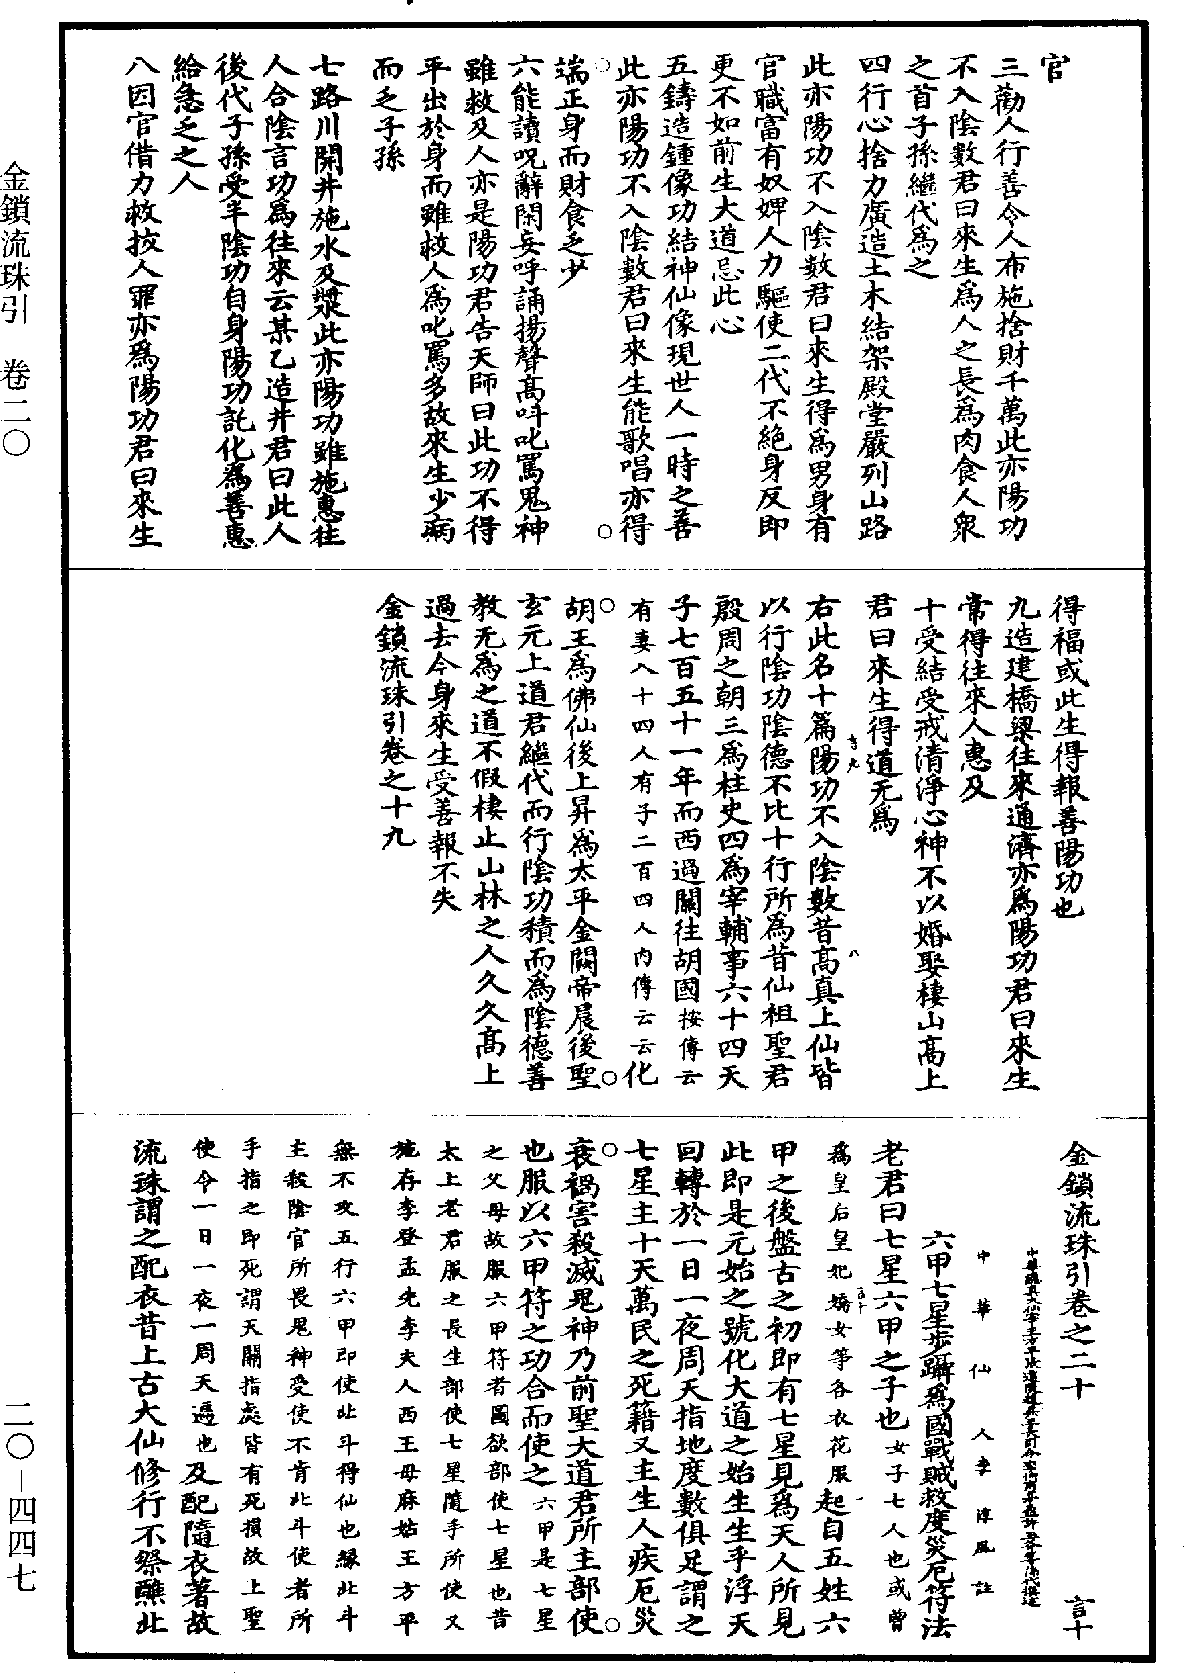 官
三勸人行善令人布施捨財千萬此亦陽功
不入陰數君曰來生爲人之長爲肉食人衆
之首子孫繼代爲之
四行心捨力廣造土木結架殿堂嚴列山路
此亦陽功不入陰數君曰來生得爲男身有
官職富有奴婢人力驅使二代不絕身反即
更不如前生大道忌此心
五鑄造鍾像功結神仙像現世人一時之善
此亦陽功不入陰數君曰來生能歌唱亦得
端正身而財食乏少
六能讀呪辭閑妄呼誦揚聲高叫叱罵鬼神
雖救及人亦是陽功君告天師曰此功不得
平出於身而雖救人爲叱罵多故來生少病
而乏子孫
七路川開井施水及漿此亦陽功雖施惠往
人合陰言功爲往來云某乙造井君曰此人
後代子孫受半陰功自身陽功託化爲善惠
給急乏之人
八因官借力救拔人罪亦爲陽功君曰來生
得福或此生得報善陽功也
九造建橋梁往來通濟亦爲陽功君曰來生
常得往來人惠及
十受結受戒清淨心神不以婚娶棲山高上
君曰來生得道无爲
右此名十篇陽功不入陰數昔高真上仙皆
以行陰功陰德不比十行所爲昔仙祖聖君
殷周之朝三爲柱史四爲宰輔事六十四天
子七百五十一年而西過關往胡國按傳云
有妻八十四人有子二百四人內傳云云化
胡王爲佛仙後上昇爲太平金闕帝晨後聖
玄元上道君繼代而行陰功積而爲陰德善
教无爲之道不假棲止山林之人久久高上
過去今身來生受善報不失
金鎖流珠引卷之十九
金鎖流珠引卷之二十 言十
中華仙人李淳風註
六甲七星步躡爲國戰賊救度災厄符法
老君曰七星六甲之子也女子七人也或曾
爲皇后皇妃嬌女等各衣花服起自五姓六
甲之後盤古之初即有七星見爲天人所見
此即是元始之號化大道之始生生乎浮天
回轉於一日一夜周天指地度數俱足謂之
七星主十天萬民之死籍又主生人疾厄災
衰禍害殺滅鬼神乃前聖大道君所主部使
也服以六甲符之功合而使之六甲是七星
之父母故服六甲符者圖欲部使七星也昔
太上老君服之長生部使七星隨手所使又
施存李登孟先李夫人西王母麻姑王方平
無不攻五行六甲即使北斗得仙也緣北斗
主殺陰官所畏鬼神受使不肯北斗使者所
手指之即死謂天關指處皆有死損故上聖
使令一日一夜一周天遇也及配隨衣著故
流珠謂之配衣昔上古大仙修行不祭醮北
金鎖流珠引　卷二〇
二〇－四四七